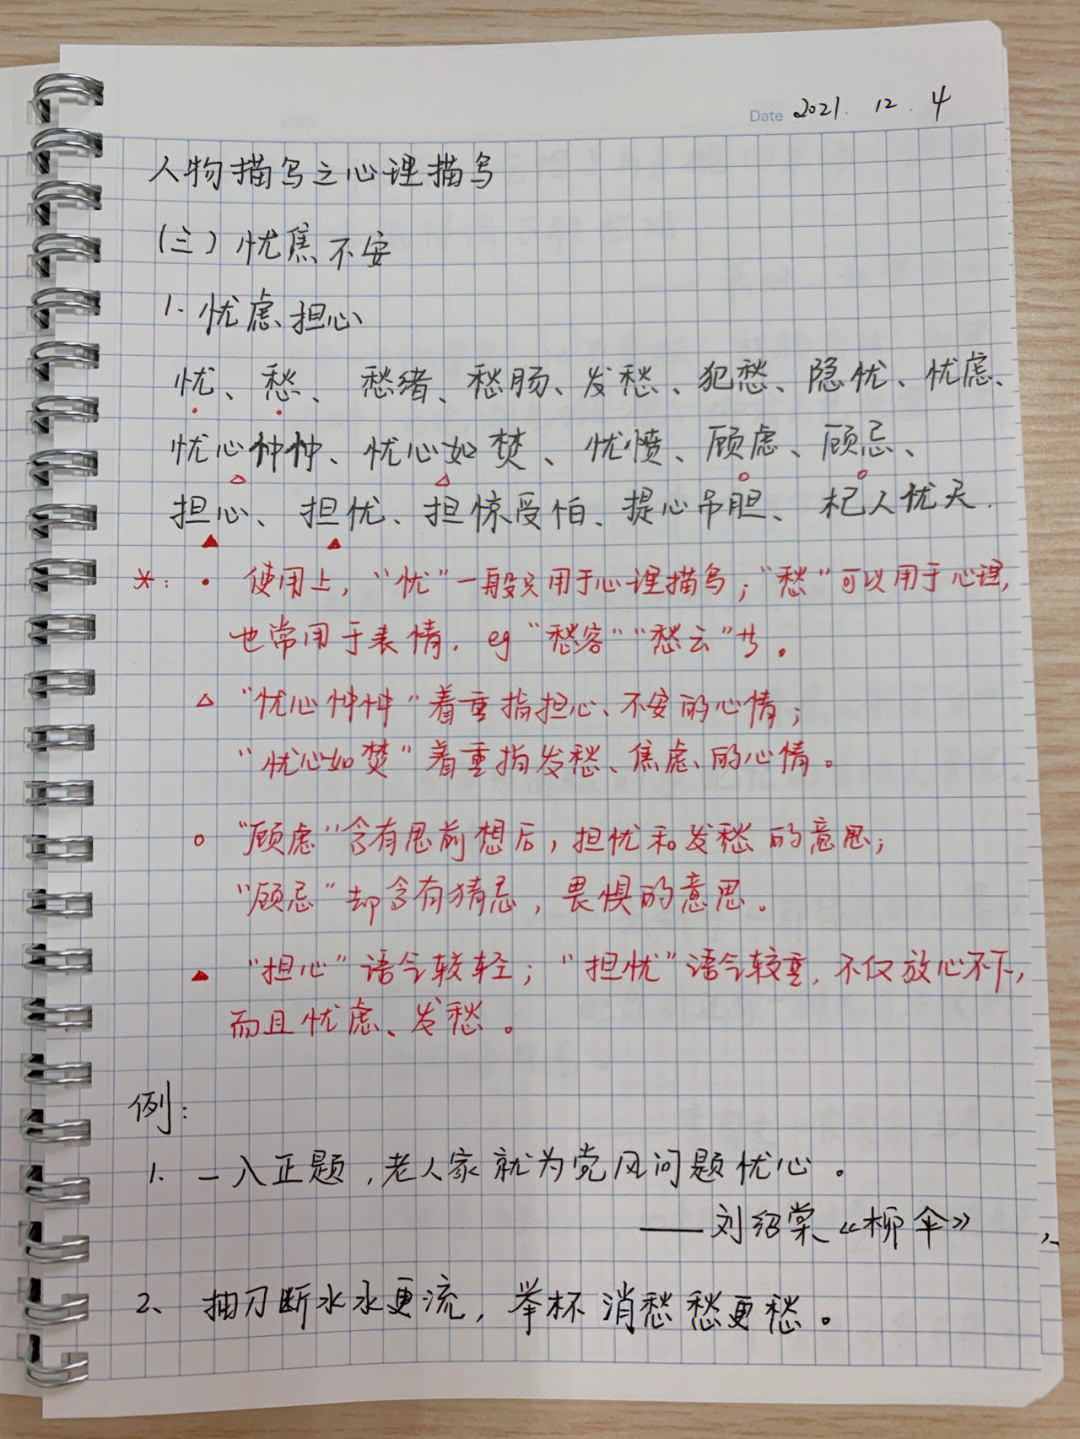 Date 2021. 12. 4
人物描写之心理描写
(三) 忧焦不安
1. 忧虑、担心
忧、愁、愁绪、愁肠、发愁、犯愁、隐忧、忧虑、
忧心忡忡、忧心如焚、忧愤、顾虑、顾忌、
担心、担忧、担惊受怕、提心吊胆、杞人忧天.
*: • 使用上,“忧”一般只用于心理描写;“愁”可以用于心理,
也常用于表情. eg “愁容”“愁云”等。
△ “忧心忡忡”着重指担心、不安的心情;
“忧心如焚”着重指发愁、焦虑的心情。
○ “顾虑”含有思前想后,担忧和发愁的意思;
“顾忌”却含有猜忌,畏惧的意思。
▲ “担心”语气较轻;“担忧”语气较重,不仅放心不下,
而且忧虑、发愁。
例:
1. 一入正题,老人家就为党风问题忧心。
——刘绍棠《柳伞》
2、抽刀断水水更流,举杯消愁愁更愁。